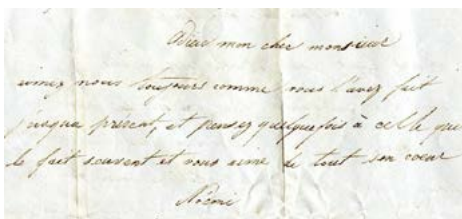 adieu mon cher monsieur
aimez nous toujours comme vous l'avez fait
jusqua présent, et pensez quelquefois à celle que
le fait souvent et vous aime de tout son coeur
Noémi